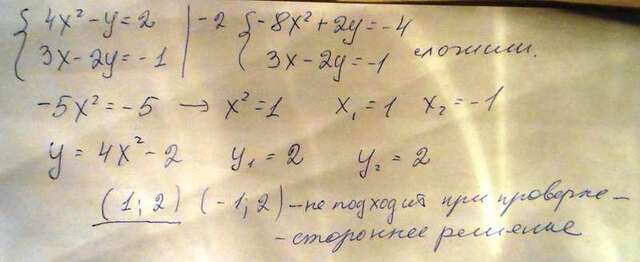 { 4x² - y = 2 | -2 { -8x² + 2y = -4
{ 3x - 2y = -1 | { 3x - 2y = -1 сложили.
-5x² = -5 → x² = 1 x₁ = 1 x₂ = -1
y = 4x² - 2 y₁ = 2 y₂ = 2
(1; 2) (-1; 2) - не подходит при проверке -
- стороннее решение